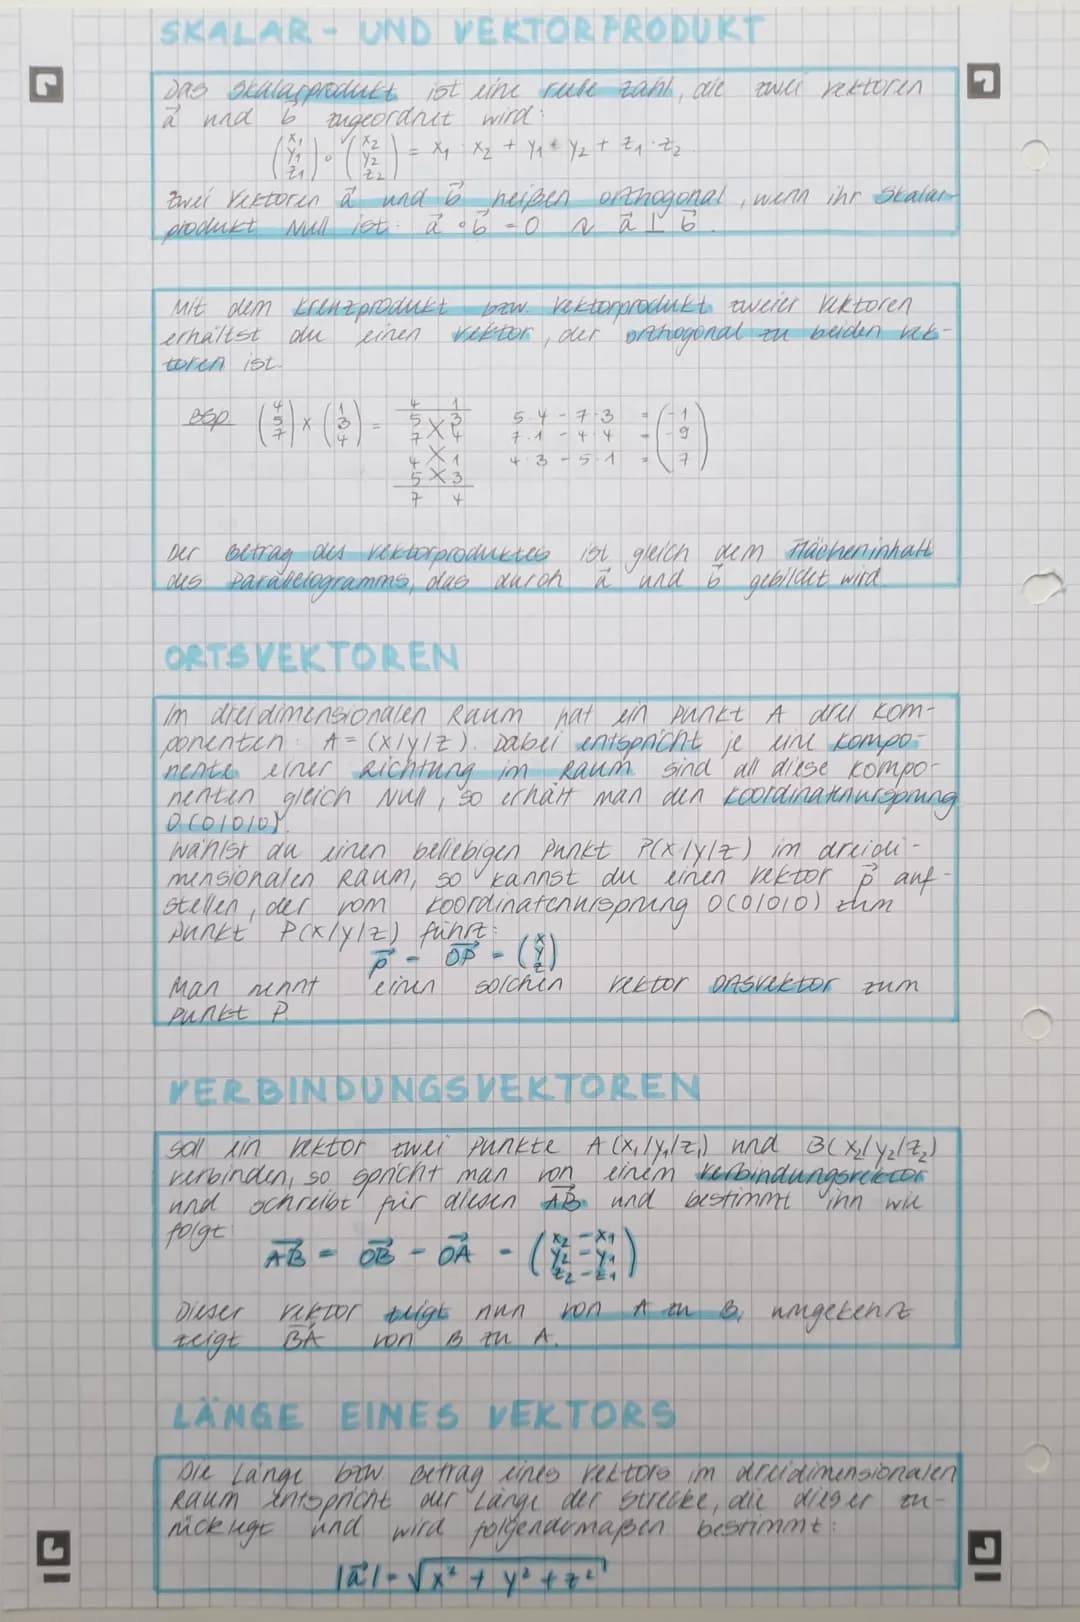 SKALAR- UND VEKTORPRODUKT
Das Skalarprodukt ist eine reelle Zahl, die zwei Vektoren
a⃗ und b⃗ zugeordnet wird:
(x₁ y₁ z₁) ∘ (x₂ y₂ z₂) = x₁ · x₂ + y₁ · y₂ + z₁ · z₂
Zwei Vektoren a⃗ und b⃗ heißen orthogonal, wenn ihr Skalar-
produkt Null ist: a⃗ ∘ b⃗ = 0 ~ a⃗ ⊥ b⃗.
Mit dem Kreuzprodukt bzw. Vektorprodukt zweier Vektoren
erhältst du einen Vektor, der orthogonal zu beiden Vek-
toren ist.
4 1
Bsp. (4 5 7) × (1 3 4) = 5 × 3 5·4 - 7·3 = (-1
7 × 4 7·1 - 4·4 = -9
4 × 1 4·3 - 5·1 = 7)
5 × 3
7 4
Der Betrag des Vektorproduktes ist gleich dem Flächeninhalt
des Parallelogramms, das durch a⃗ und b⃗ gebildet wird.
ORTSVEKTOREN
Im dreidimensionalen Raum hat ein Punkt A drei Kom-
ponenten: A = (x/y/z). Dabei entspricht je eine Kompo-
nente einer Richtung im Raum. Sind all diese Kompo-
nenten gleich Null, so erhält man den Koordinatenursprung
O(0/0/0).
Wählst du einen beliebigen Punkt P(x/y/z) im dreidi-
mensionalen Raum, so kannst du einen Vektor p⃗ auf-
stellen, der vom Koordinatenursprung O(0/0/0) zum
Punkt P(x/y/z) führt:
p⃗ = OP⃗ = (x y z)
Man nennt einen solchen Vektor Ortsvektor zum
Punkt P.
VERBINDUNGSVEKTOREN
Soll ein Vektor zwei Punkte A(x₁/y₁/z₁) und B(x₂/y₂/z₂)
verbinden, so spricht man von einem Verbindungsvektor
und schreibt für diesen AB⃗ und bestimmt ihn wie
folgt:
AB⃗ = OB⃗ - OA⃗ = (x₂ - x₁ y₂ - y₁ z₂ - z₁)
Dieser Vektor zeigt nun von A zu B, umgekehrt
zeigt BA⃗ von B zu A.
LÄNGE EINES VEKTORS
Die Länge bzw. Betrag eines Vektors im dreidimensionalen
Raum entspricht der Länge der Strecke, die dieser zu-
rücklegt und wird folgendermaßen bestimmt:
|a⃗| = √x² + y² + z²